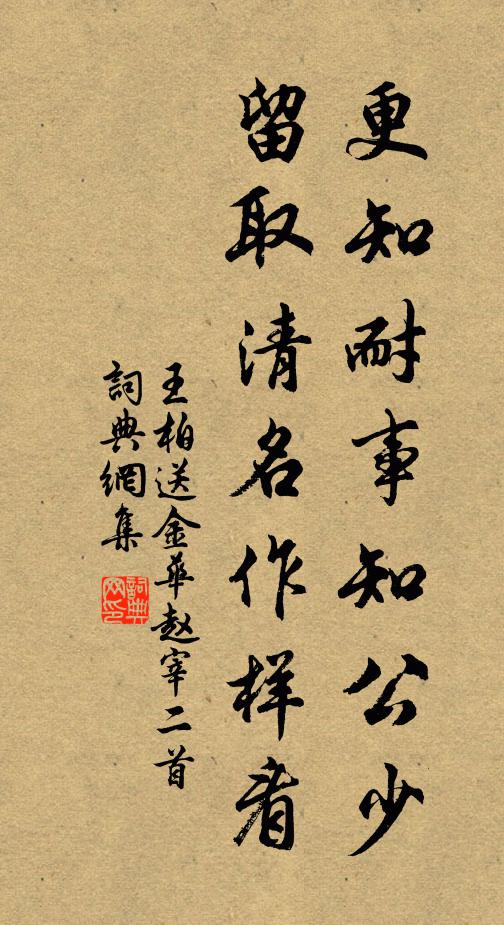 更知耐事知公少
留取清名作样看
王柏送金華赵宰二首
詞典網集
詞典網印